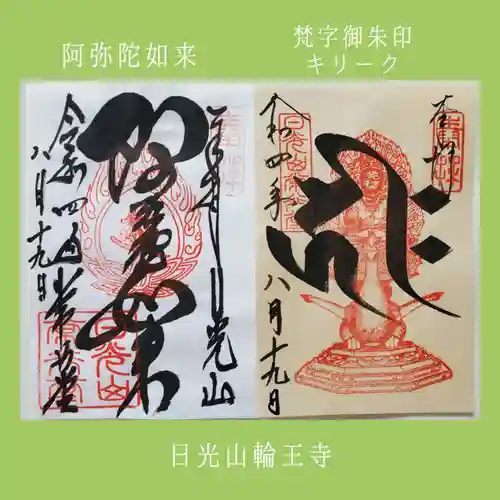 阿弥陀如来
梵字御朱印
キリーク
奉拝
日光山
阿弥陀如来
令和四年
八月十九日
奉拝
令和四年
八月十九日
日光山輪王寺